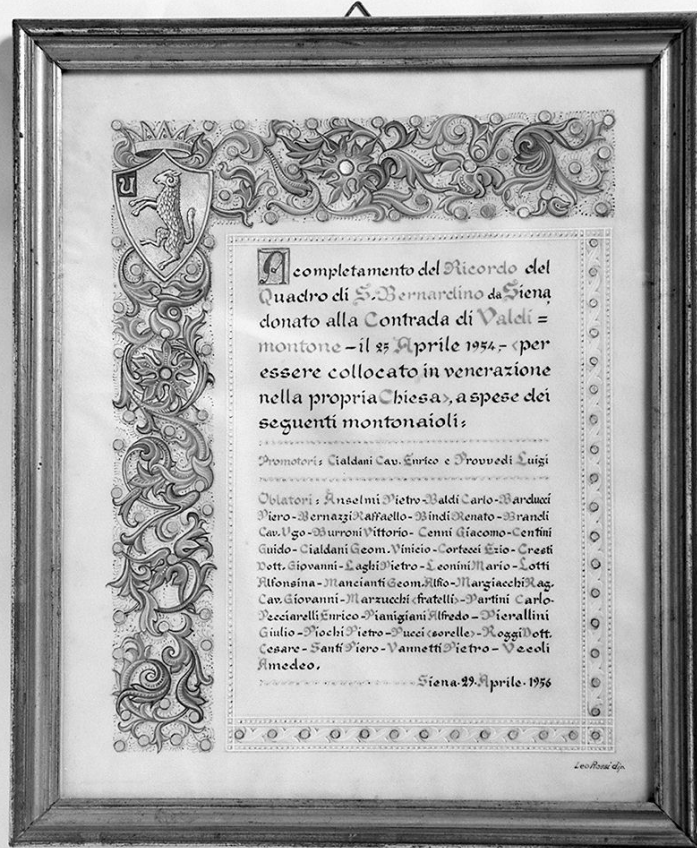 U
A completamento del Ricordo del
Quadro di S. Bernardino da Siena
donato alla Contrada di Valdi =
montone - il 25 Aprile 1954,- (per
essere collocato in venerazione
nella propria Chiesa), a spese dei
seguenti montonaioli:
Promotori: Cialdani Cav. Enrico e Provvedi Luigi
Oblatori: Anselmi Pietro - Baldi Carlo - Barducci
Piero - Bernazzi Raffaello - Bindi Renato - Brandi
Cav. Ugo - Burroni Vittorio - Cenni Giacomo - Centini
Guido - Cialdani Geom. Vinicio - Cortecci Ezio - Cresti
Dott. Giovanni - Laghi Pietro - Leonini Mario - Lotti
Alfonsina - Mancianti Geom. Alfio - Margiacchi Rag.
Cav. Giovanni - Marzucchi (fratelli) - Partini Carlo -
Pecciarelli Enrico - Pianigiani Alfredo - Pierallini
Giulio - Piochi Pietro - Pucci (sorelle) - Roggi Dott.
Cesare - Santi Piero - Vannetti Pietro - Veeoli
Amedeo.
Siena - 29 Aprile - 1956
Leo Rossi dip.